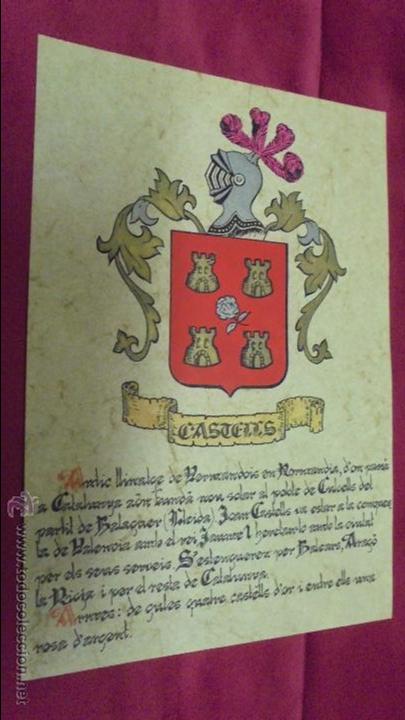 CASTELLS
Antic llinatge de Vermandois en Normandia, d'on passà
a Catalunya un nou solar al poble de Cubells del
partit de Balaguer (Lleida). Joan Castells va estar a la conques
ta de Valencia amb el rei Jaume I heredant amb la ciutat
per els seus serveis. S'estengueren per Balears, Aragó
la Rioja i per el resta de Catalunya.
Armes: de gules quatre castells d'or i entre ells una
rosa d'argent.
todocoleccion.net